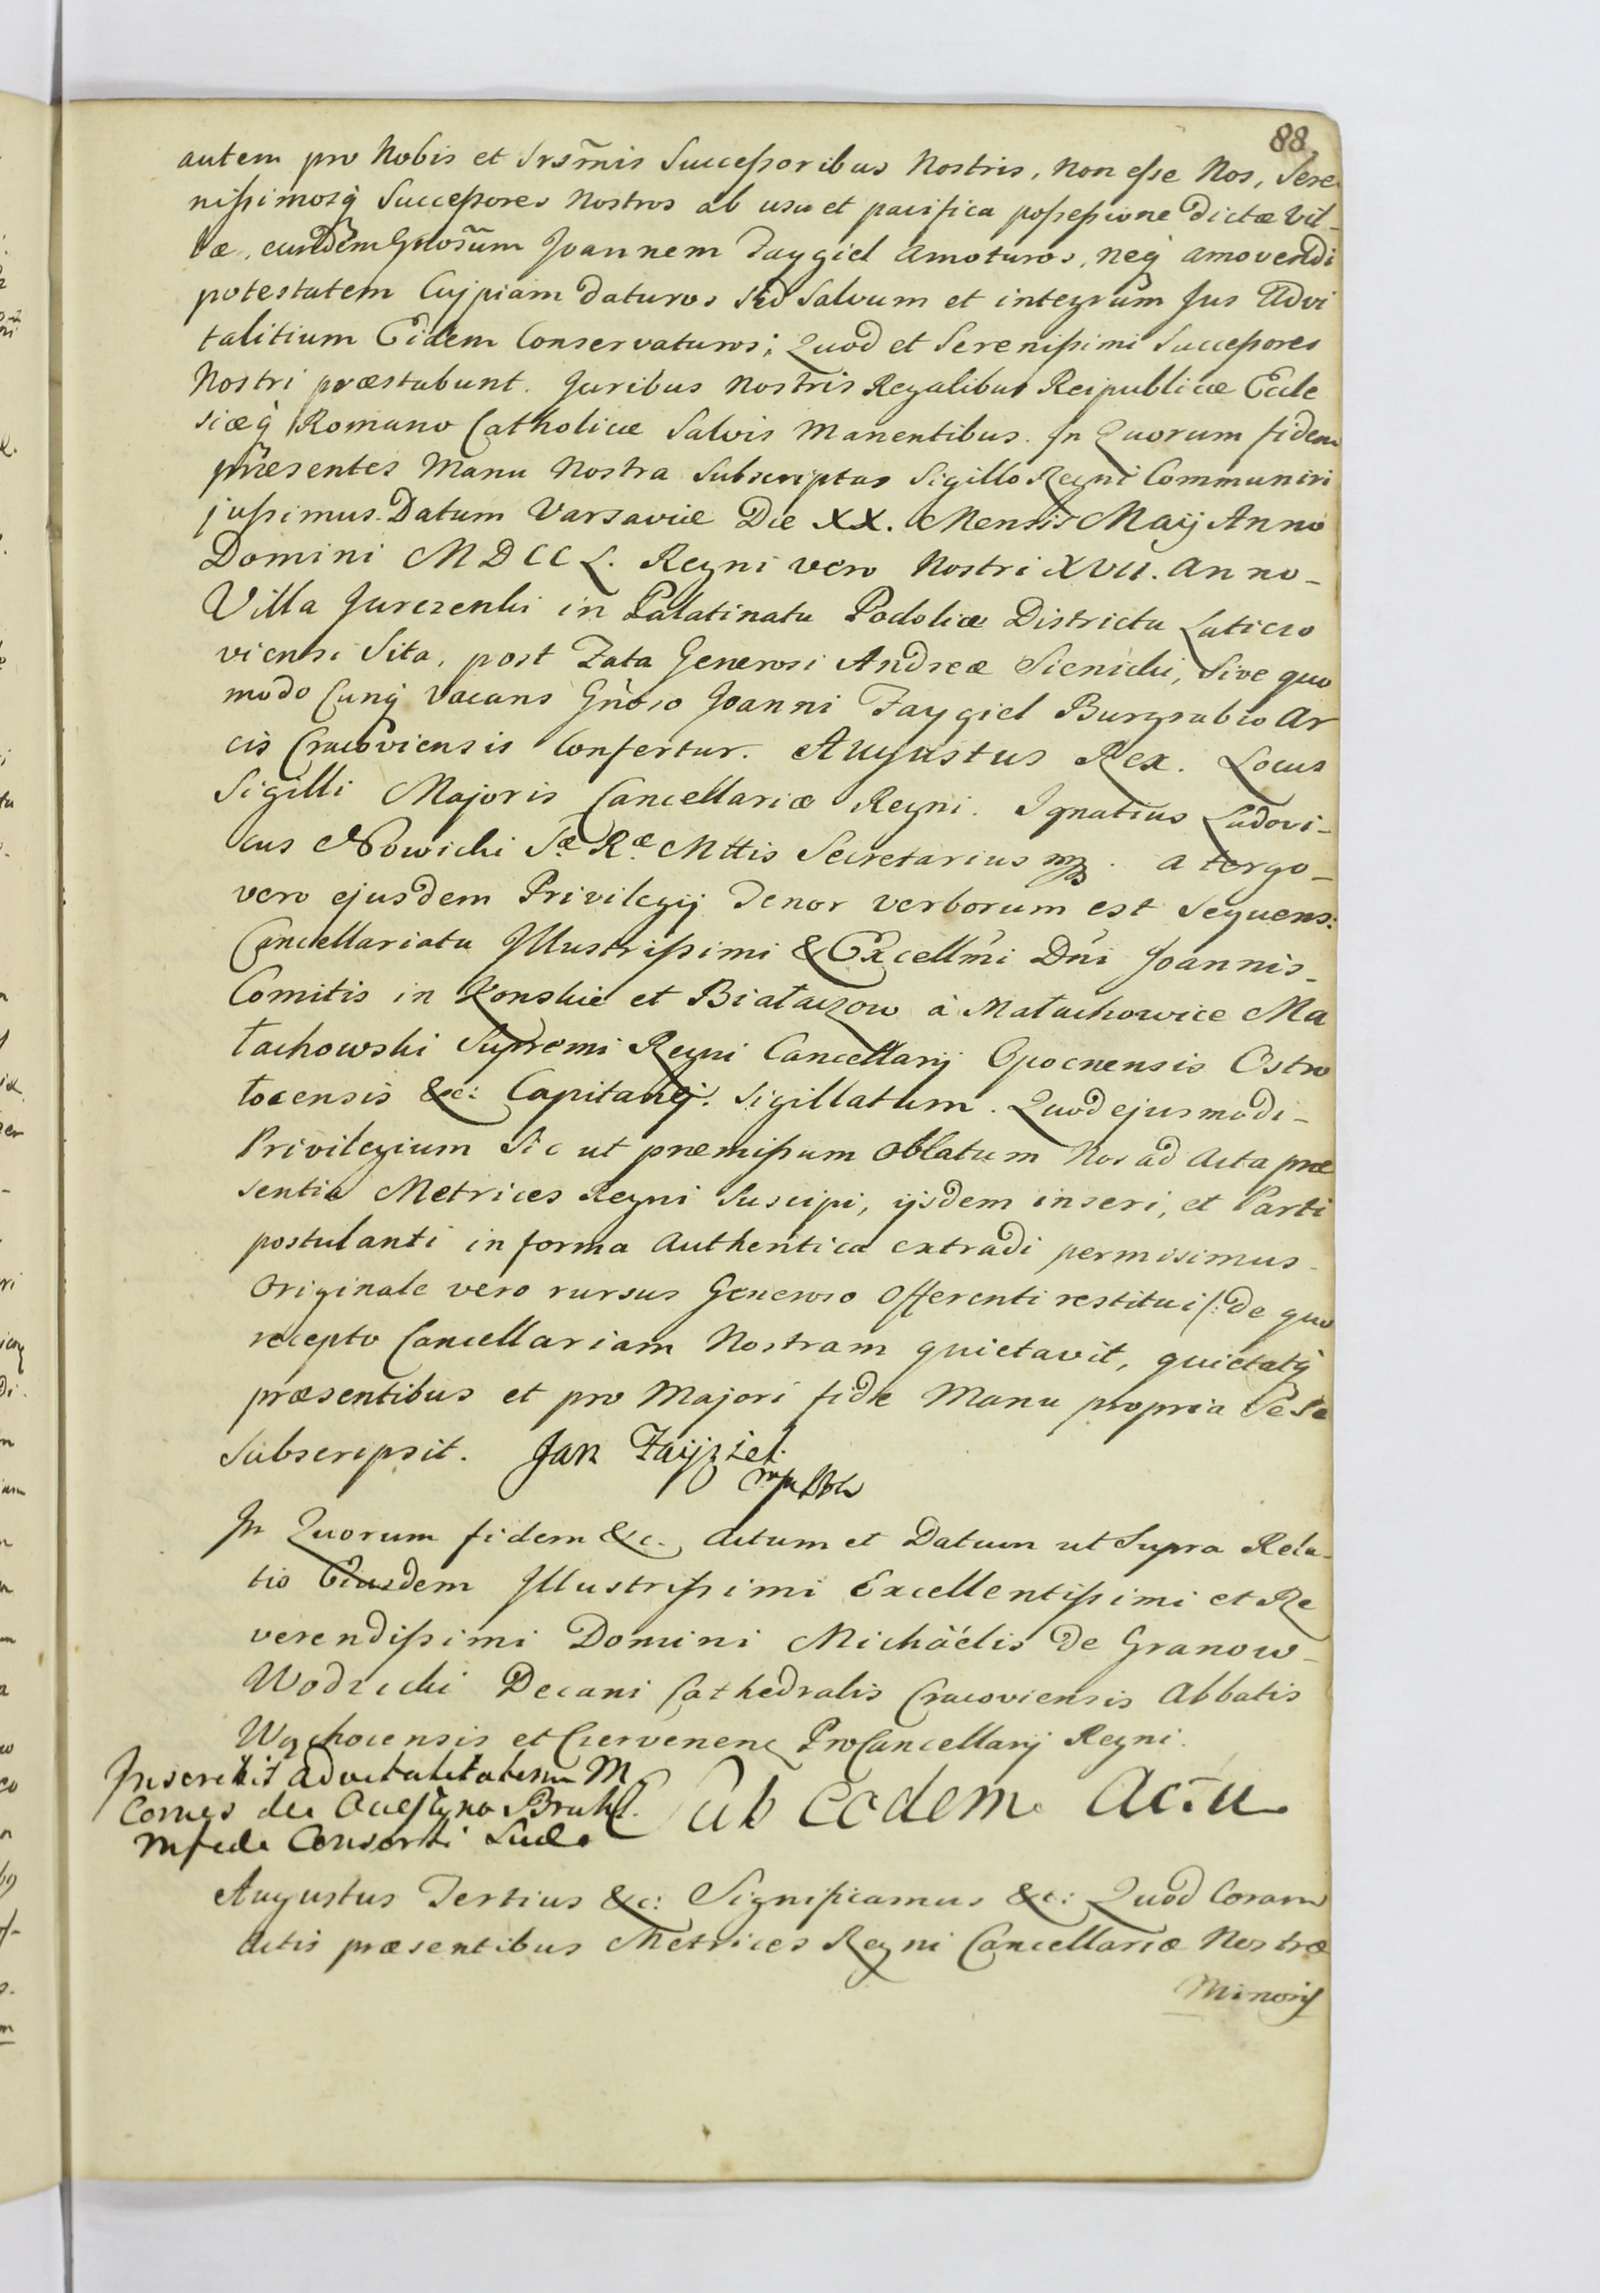 88.
autem pro Nobis et Srsm̃is Successoribus Nostris, Non esse Nos, Sere
nissimosq̀ Successores Nostros ab usu et pacifica possessione Dictæ Vil-
læ, eundem Gnosũm Joannem Faygiel amoturos, neq̀ amovendi
potestatem Cujpiam Daturos sed Salvum et integrum Jus Advi
talitium Eidem Conservaturos; Quod et Serenissimi Successores
Nostri præstabunt. Juribus Nostris Regalibus Reipublicæ Eccle
siæq̀ Romano Catholicæ Salvis Manentibus. In Quorum fidem
præsentes Manu Nostra Subscriptas Sigillo Regni Communiri
jussimus. Datum Varsaviæ Die XX. Mensis Maij Anno
Domini MDCCL. Regni vero Nostri XVII. anno-
Villa Jurczenki in Palatinatu Podoliæ Districtu Laticzo
viensi Sita, post Fata Generosi Andreæ Sienicki, Sive quo
modo Cunq̀ Vacans Gnoso Joanni Faygiel Burgrabio Ar
cis Cracoviensis Confertur. Augustus Rex. Locus
Sigilli Majoris Cancellariæ Regni. Ignatius Ludovi-
cus Nowicki Sæ Ræ Mttis Secretarius mp. a tergo-
vero ejusdem Privilegij Tenor verborum est Sequens:
Cancellariatu Illustrissimi & Excellm̃i Dñi Joannis-
Comitis in Konskie et Białaczow à Małachowice Ma
łachowski Supremi Regni Cancellarij Opocnensis Ostro
łocensis &c: Capitanej. Sigillatum. Quod ejusmodi-
Privilegium Sic ut præmissum Oblatum Nos ad Acta præ
sentia Metrices Regni Suscipi, ijsdem inseri, et Parti
postulanti in forma Authentica extradi permisimus-
Originale vero rursus Generoso Offerenti restitui /: de quo
recepto Cancellariam Nostram quietavit, quietatq̀
præsentibus et pro Majori fide Manu propria Sese
Subscripsit. Jan Faijgiel.
mp
In Quorum fidem &c. Actum et Datum ut Supra Rela-
tio Eiusdem Illustrissimi Excellentissimi et Re
verendissimi Domini Michäelis de Granow-
Wodzicki Decani Cathedralis Cracoviensis Abbatis
Wąchocensis et Czervenen ProCancellarij Regni.
Inscribit advitalitatem M.
Comes de Brühl.
Consorti Suæ.
Sub eodem Actu
Augustus Tertius &c: Significamus &c: Quod Coram
Actis præsentibus Metrices Regni Cancellariæ Nostræ
Minoris